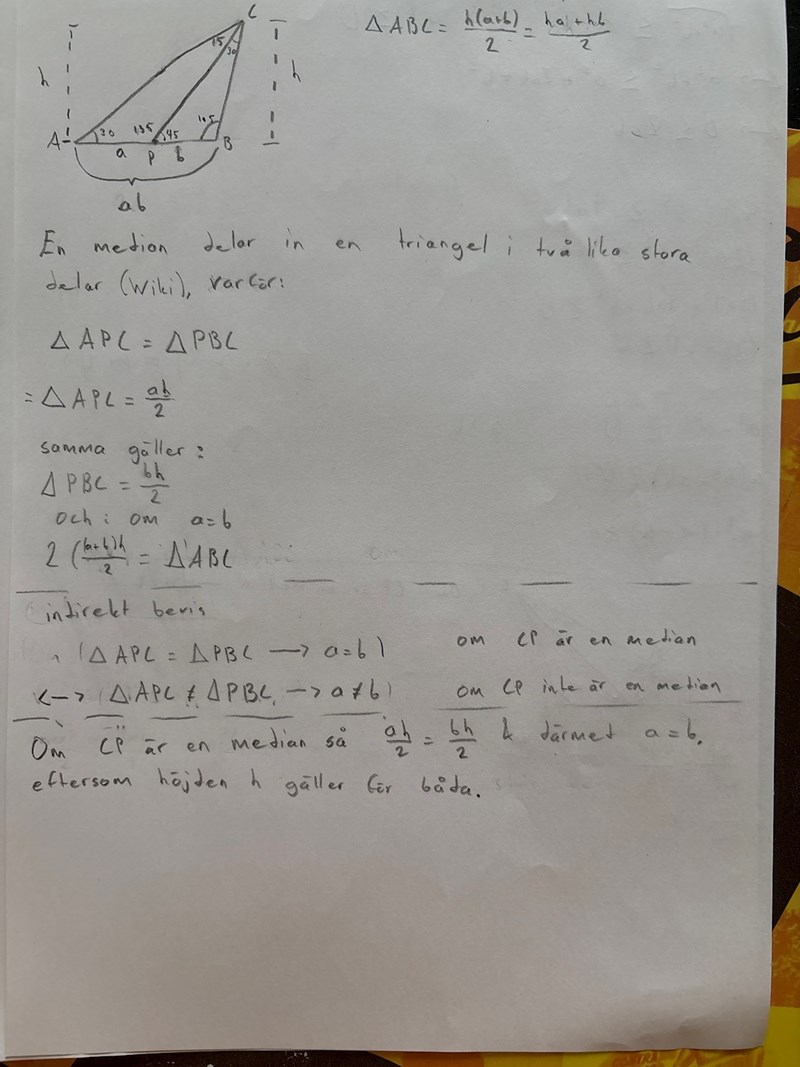 C
△ABC = h(a+b)/2 = ha+hb/2
15
30
h
h
A
30
135
45
105
B
a
P
b
ab
En median delar in en triangel i två lika stora
delar (Wiki), varför:
△APC = △PBC
= △APC = ah/2
samma gäller:
△PBC = bh/2
och: om a=b
2 ((a+b)h/2 = △ABC
indirekt bevis
(△APC = △PBC —> a=b) om CP är en median
<—> (△APC ≠ △PBC —> a≠b) om CP inte är en median
Om CP är en median så ah/2 = bh/2 & därmet a=b,
eftersom höjden h gäller för båda.